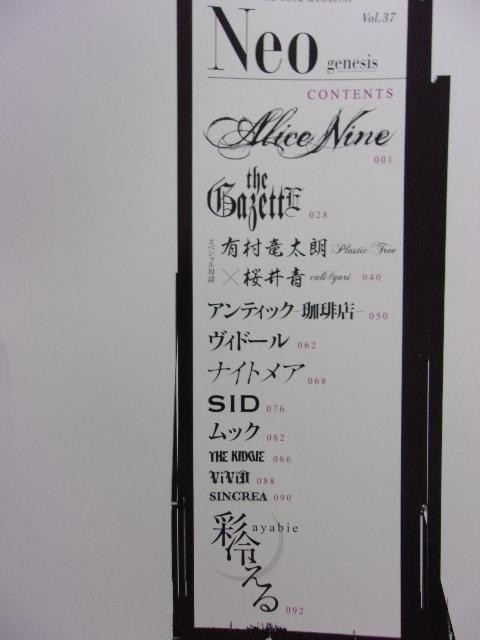 Vol.37
Neo genesis
CONTENTS
Alice Nine
001
the GazettE 028
スペシャル対談
有村竜太朗 Plastic Tree
×桜井青 cali≠gari 040
アンティック-珈琲店- 050
ヴィドール 062
ナイトメア 068
SID 076
ムック 082
THE KIDDIE 086
ViViD 088
SINCREA 090
彩冷える ayabie 092